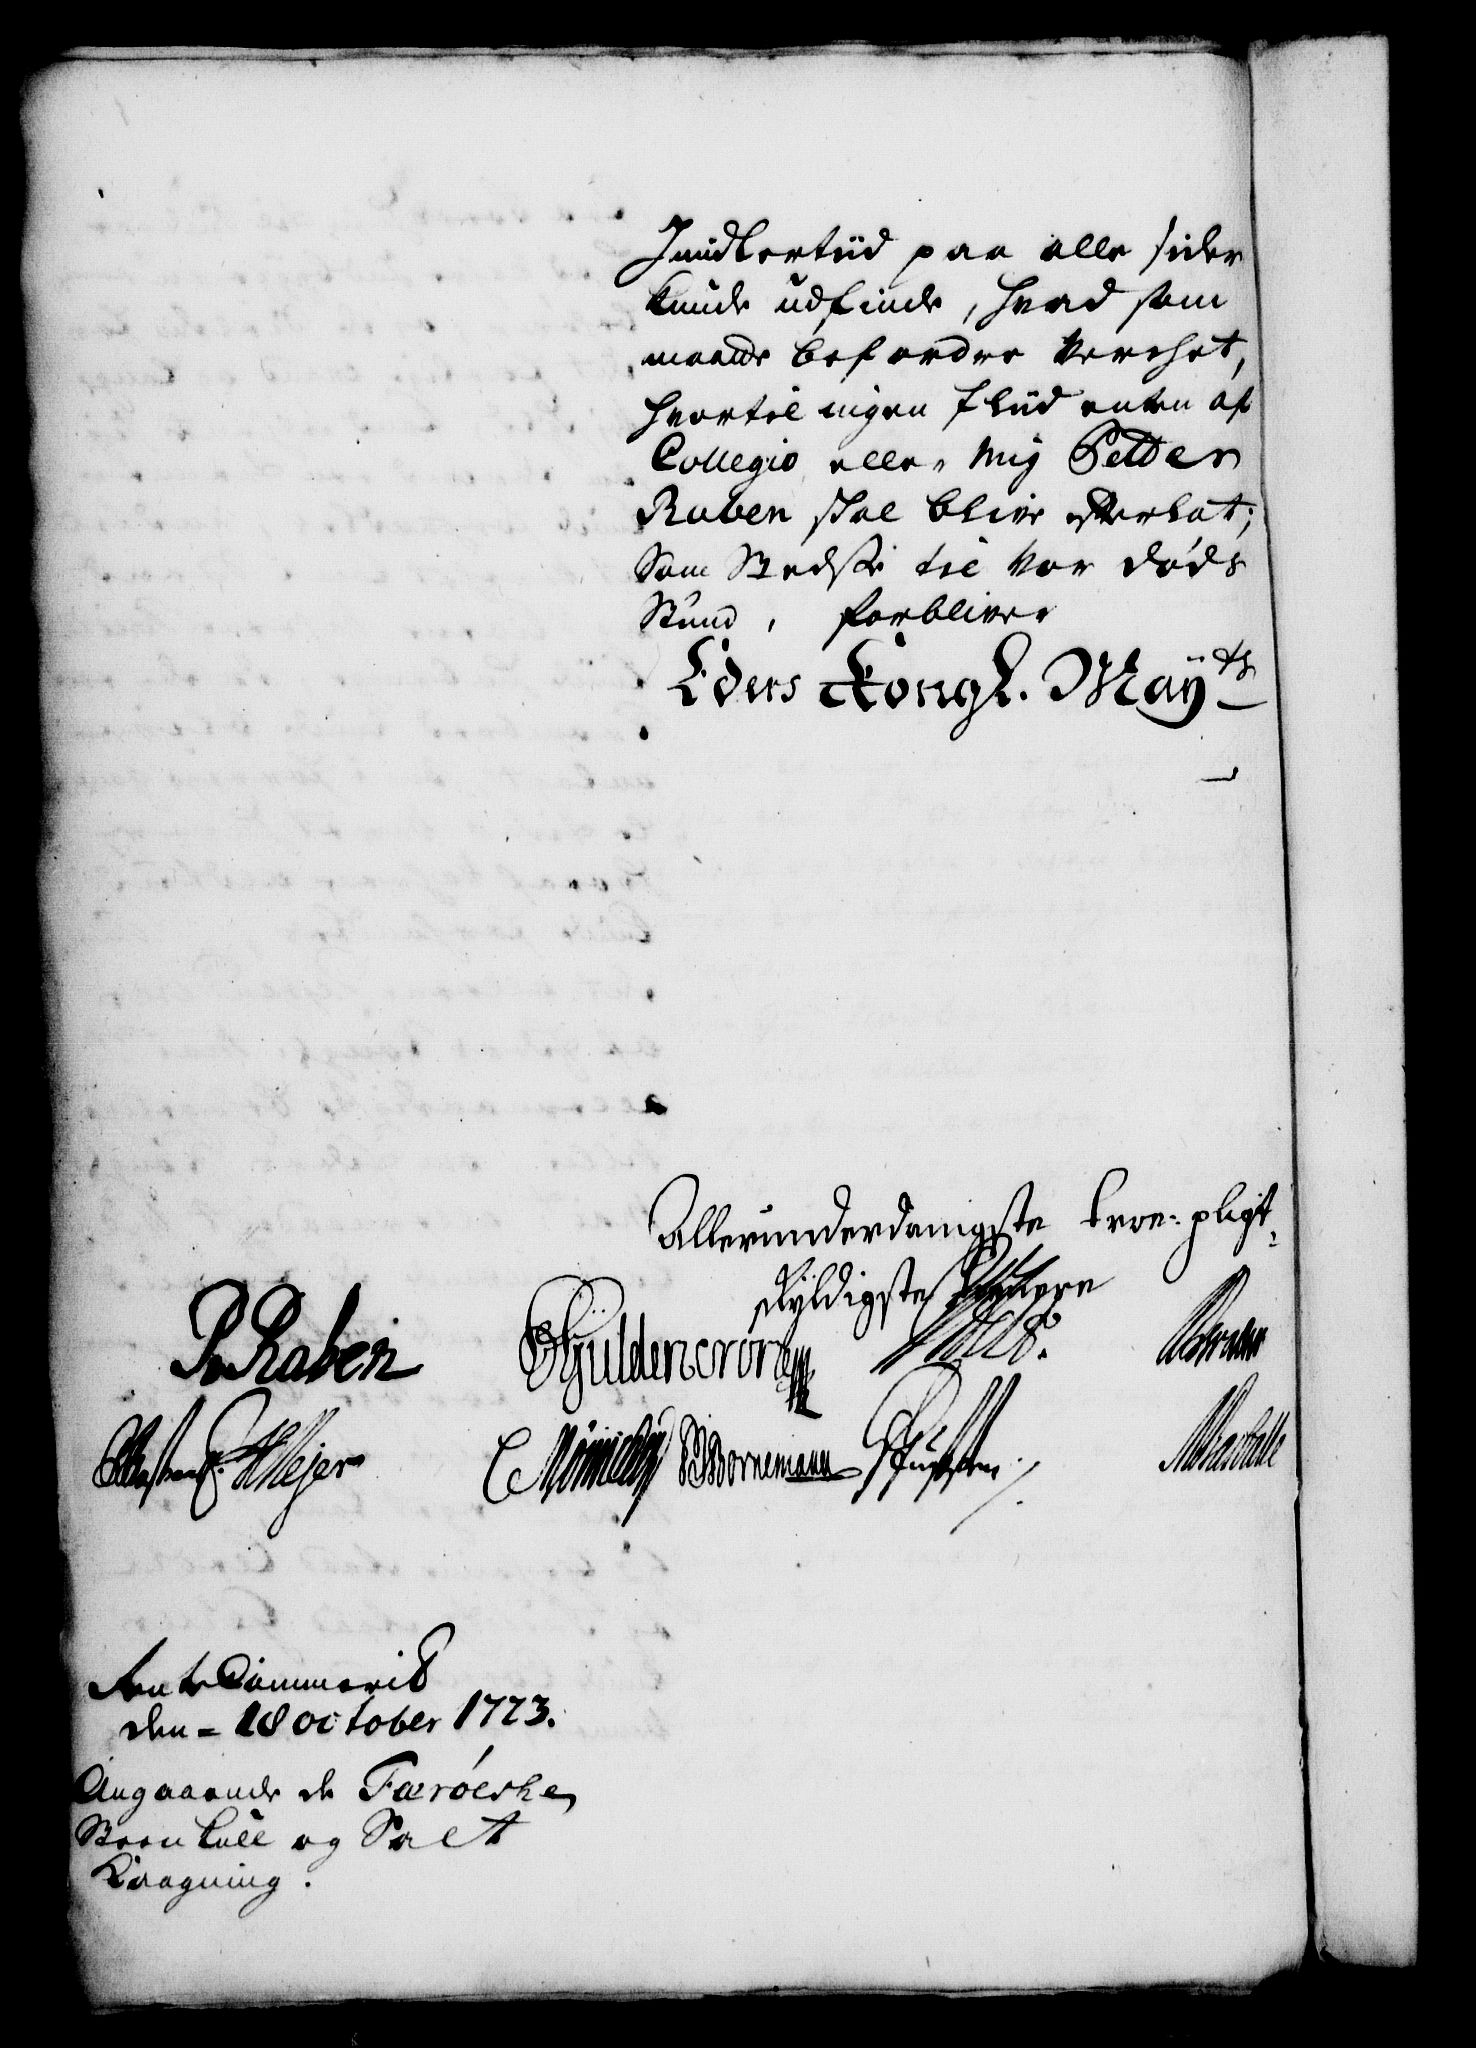 Imidlertiid paa alle sider
kunde udfinde, hvad som
maatte befordre Verchet,
hvortil ingen fliid enten af
Collegio eller Mig Petter
Raben skal blive efterlat;
Som Stedsse til vor døds
Stund, forbliver
Eders Kongl. Mayts
Allerunderdanigste troe-pligt-
skyldigste Tienere
P. Raben Gyldencrone
C HMejer Bornemann
Rente Cammerit
den = 18 october 1723.
Angaaende de Færöeske
Steenkull og Salt
Kaagning.